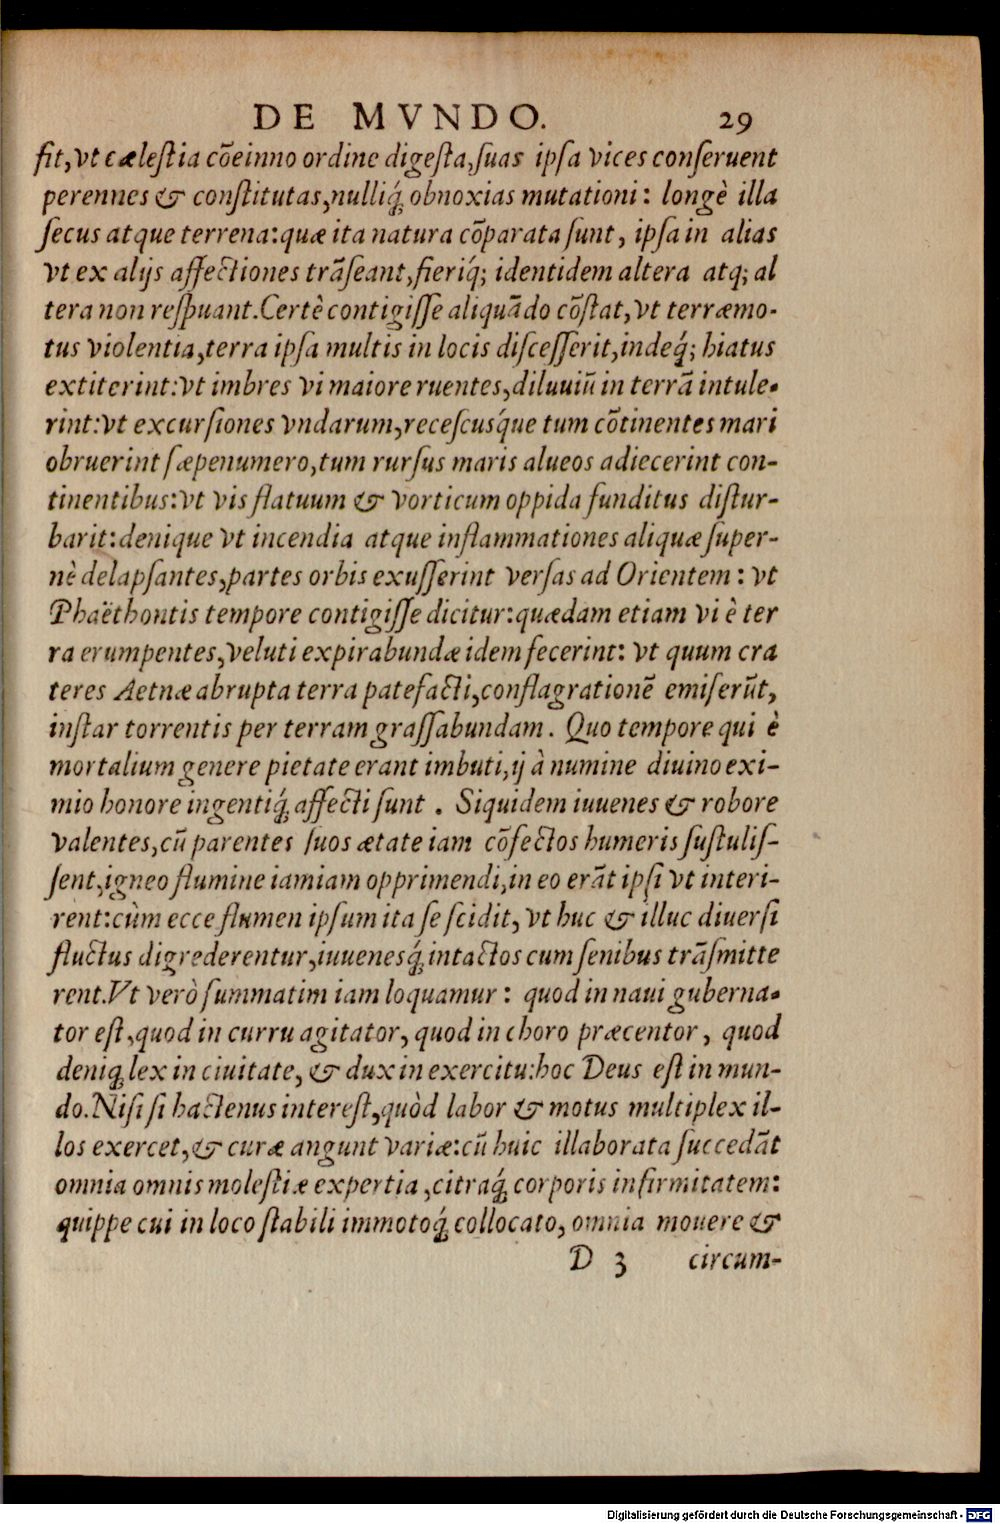 DE MVNDO. 29
fit, vt cælestia cõeinno ordine digesta, suas ipsa vices conseruent
perennes & constitutas, nulliq́; obnoxias mutationi: longè illa
secus atque terrena: quæ ita natura cõparata sunt, ipsa in alias
vt ex alijs affectiones trãseant, fieriq́; identidem altera atq; al
tera non respuant. Certè contigisse aliquãdo cõstat, vt terræmo-
tus violentia, terra ipsa multis in locis discesserit, indeq́; hiatus
extiterint: vt imbres vi maiore ruentes, diluuiũ in terrã intule-
rint: vt excursiones vndarum, recescusq́ue tum cõtinentes mari
obruerint sæpenumero, tum rursus maris alueos adiecerint con-
tinentibus: vt vis flatuum & vorticum oppida funditus distur-
barit: denique vt incendia atque inflammationes aliquæ super-
nè delapsantes, partes orbis exusserint versas ad Orientem: vt
Phaëthontis tempore contigisse dicitur: quædam etiam vi è ter
ra erumpentes, veluti expirabundæ idem fecerint: vt quum cra
teres Aetnæ abrupta terra patefacti, conflagrationẽ emiserũt,
instar torrentis per terram grassabundam. Quo tempore qui è
mortalium genere pietate erant imbuti, ij à numine diuino exi-
mio honore ingentiq́; affecti sunt. Siquidem iuuenes & robore
valentes, cũ parentes suos ætate iam cõfectos humeris sustulis-
sent, igneo flumine iamiam opprimendi, in eo erãt ipsi vt interi-
rent: cùm ecce flumen ipsum ita se scidit, vt huc & illuc diuersi
fluctus digrederentur, iuuenesq́; intactos cum senibus trãsmitte
rent. Vt verò summatim iam loquamur: quod in naui guberna-
tor est, quod in curru agitator, quod in choro præcentor, quod
deniq; lex in ciuitate, & dux in exercitu: hoc Deus est in mun-
do. Nisi si hactenus interest, quòd labor & motus multiplex il-
los exercet, & curæ angunt variæ: cũ huic illaborata succedãt
omnia omnis molestiæ expertia, citraq́; corporis infirmitatem:
quippe cui in loco stabili immotoq́; collocato, omnia mouere &
D 3 circum-
Digitalisierung gefördert durch die Deutsche Forschungsgemeinschaft - DFG